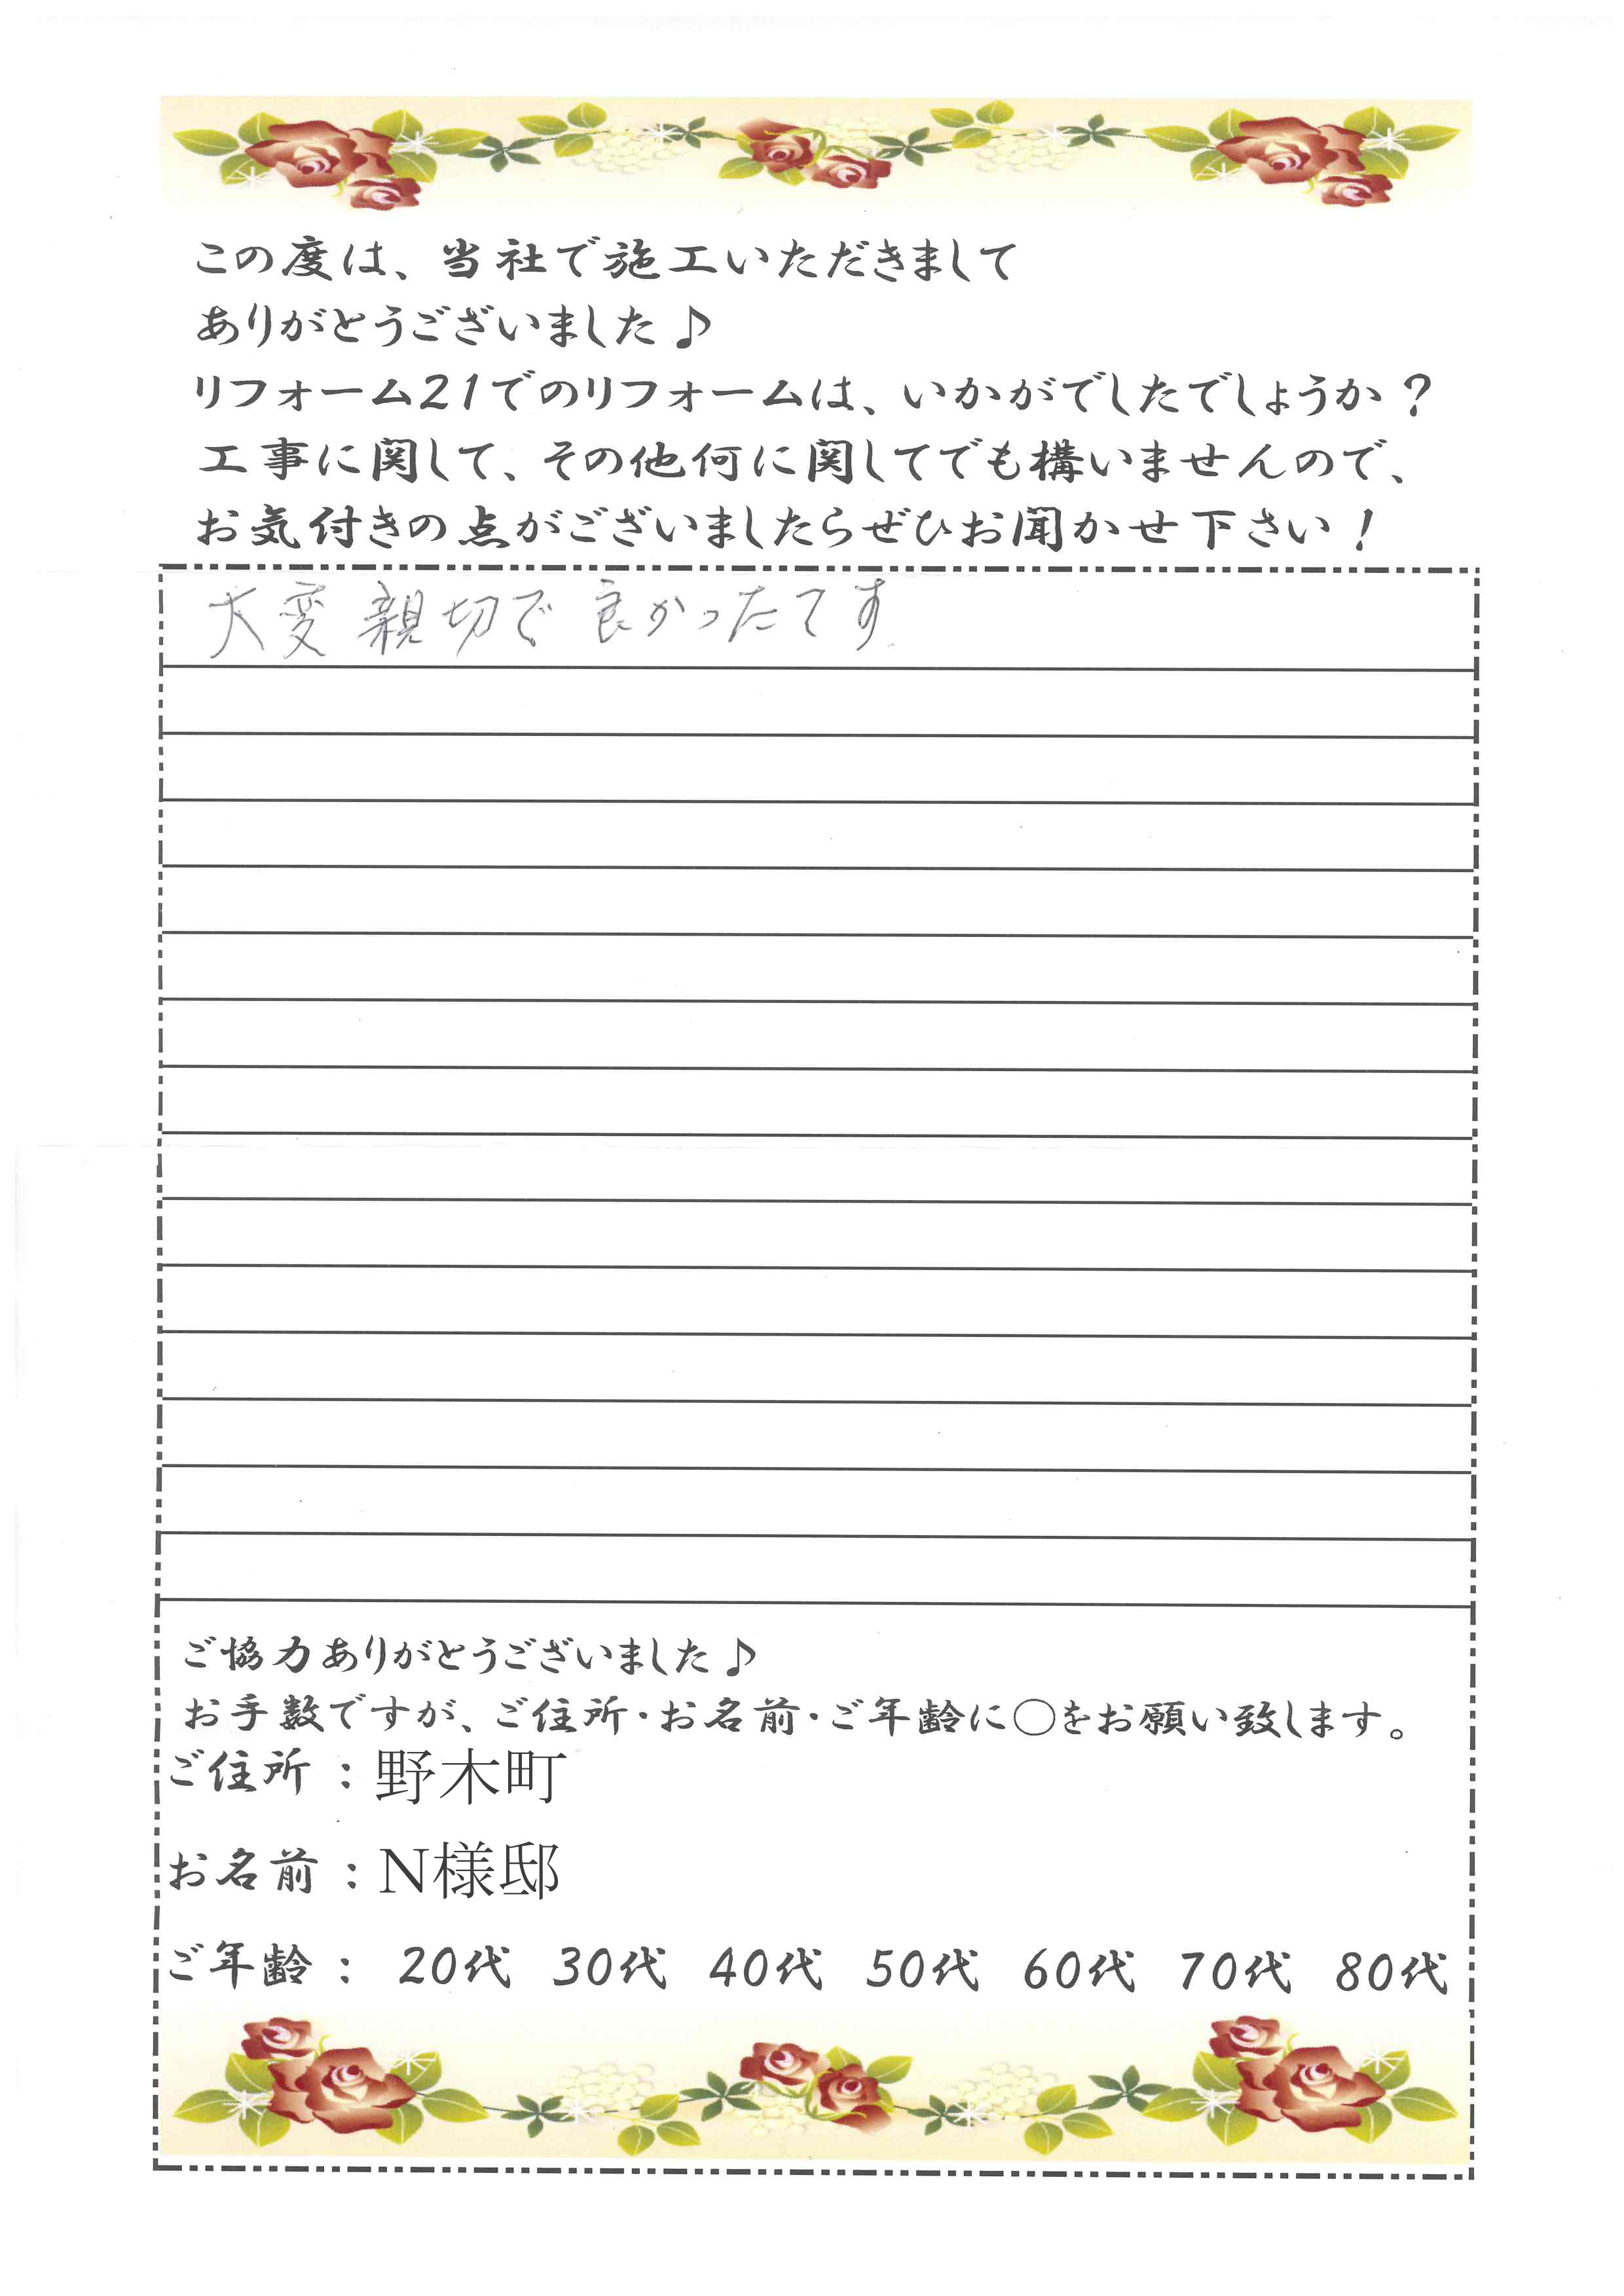 この度は、当社で施工いただきまして
ありがとうございました♪
リフォーム21でのリフォームは、いかがでしたでしょうか？
工事に関して、その他何に関してでも構いませんので、
お気付きの点がございましたらぜひお聞かせ下さい！
大変親切で良かったてす
ご協力ありがとうございました♪
お手数ですが、ご住所・お名前・ご年齢に○をお願い致します。
ご住所：野木町
お名前：N様邸
ご年齢： 20代 30代 40代 50代 60代 70代 80代